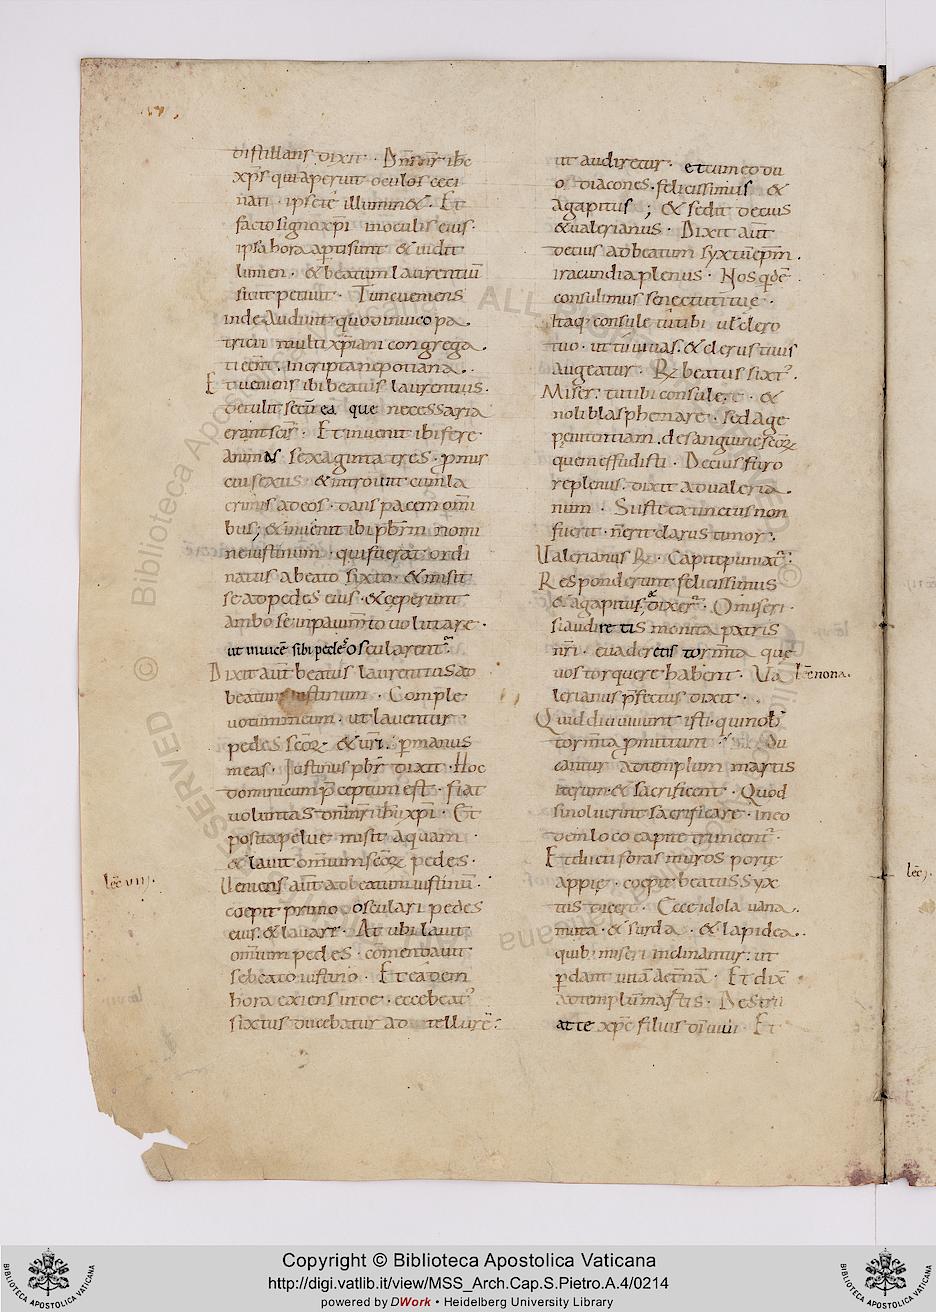 distillans dixit · Dn̄s nr̄ ihc̄
xp̄s qui aperuit oculos ceci
nati · ipse te illuminet · Et
facto signo xp̄i in oculis eius ·
ipsa hora apti sunt & uidit
lumen · & beatum laurentiū
sicut petiuit · Tunc ueniens
inde Audiuit quod in uico pa
tricii multi xp̄iani congrega
ti eēnt · in cripta nepotiana ·
Et ueniens ibi beatus laurentius ·
detulit secū ea que necessaria
erant sc̄is · Et inuenit ibi fere
animas sexaginta tres · p̄mis
cui sexus · & introiuit cum la
crimis ad eos · dans pacem om̄i
bus; & inuenit ibi p̄br̄m nomi
ne iustinum · qui fuerat ordi
natus a beato sixto · & misit
se ad pedes eius · & ceperunt
ambo se in pauim̄to uolutare ·
ut inuicē sibi pedes oscularent̄ ·
Dixit aut̄ beatus laurentius ad
beatum iustinum · Comple
uotum meum · ut lauentur
pedes sc̄oꝝ & ur̄i · p manus
meas · Justinus pbr̄ dixit · Hoc
dominicum p̄ceptum est · fiat
uoluntas dn̄i nr̄i ihu xp̄i · Et
posita pelue misit aquam ·
& lauit omnium sc̄oꝝ pedes ·
lec̄ viij.
Ueniens aut̄ ad beatum iustinū ·
coepit primo osculari pedes
eius · & lauare · At ubi lauit
omnium pedes · cōmendauit
se beato iustino · Et eadem
hora exiens inde · ecce beat᾽
sixtus ducebatur ad tellurē :
ut audiretur · et cum eo du
o diacones · felicissimus &
agapitus ; & sedit decius
& ualerianus · Dixit aūt
decius ad beatum syxtū ep̄m ·
iracundia plenus · Nos qdē
consulimus senectuti tuę ·
Itaq consule tu tibi ul̄ clero
tuo · ut tu uiuas · & clerus tuus
augeatur · ℞ beatus sixt᾽ ·
Miser · tu tibi consule · &
noli blasphemare · sed age
penitentiam · de sanguine sc̄oꝝ
quem effudisti · Decius furo
re plenus · dixit ad ualeria
num · Si iste extinctus non
fuerit · n̄ erit clarus timor ·
Valerianus ℞ · Capite puniat̄ ·
Responderunt felicissimus
& agapitus & dixer̄ · O miseri ·
si audiretis monita patris
nr̄i · euaderetis torm̄ta que
uos torquere habent · Va
lec̄ nona ·
lerianus p̄fectus dixit ·
Quid diu uiuunt isti · qui nob̄
torm̄ta p̄mittunt · Du
cantur ad templum martis
iterum · & sacrificent · Quod
si noluerint sacrificare · in eo
dem loco capite truncent̄ ·
Et ducti foras muros portę
appię · coepit beatus Syx
tus dicere · Ecce idola uana ·
muta · & surda · & lapidea ·
quib miseri inclinantur : ut
p̄dant uitā aet̄nā · Et dix̄
ad templū martis · Destru
at te xp̄c filius dī uiui · Et
lec̄ j.
Copyright © Biblioteca Apostolica Vaticana
http://digi.vatlib.it/view/MSS_Arch.Cap.S.Pietro.A.4/0214
powered by DWork • Heidelberg University Library